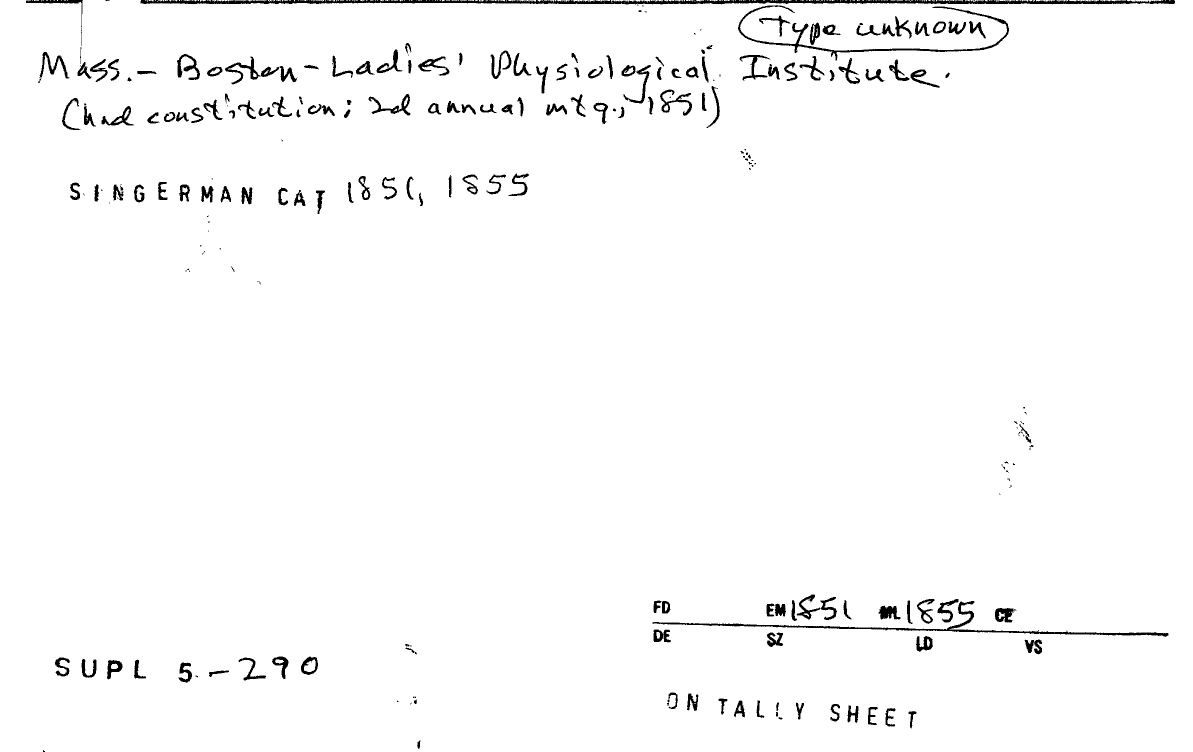 Type unknown
Mass. - Boston - Ladies' Physiological Institute.
(had constitution; 2d annual mtg., 1851)
SINGERMAN CAT 1851, 1855
FD EM 1851 ML 1855 CE
DE SZ LD VS
SUPL 5 - 290
ON TALLY SHEET